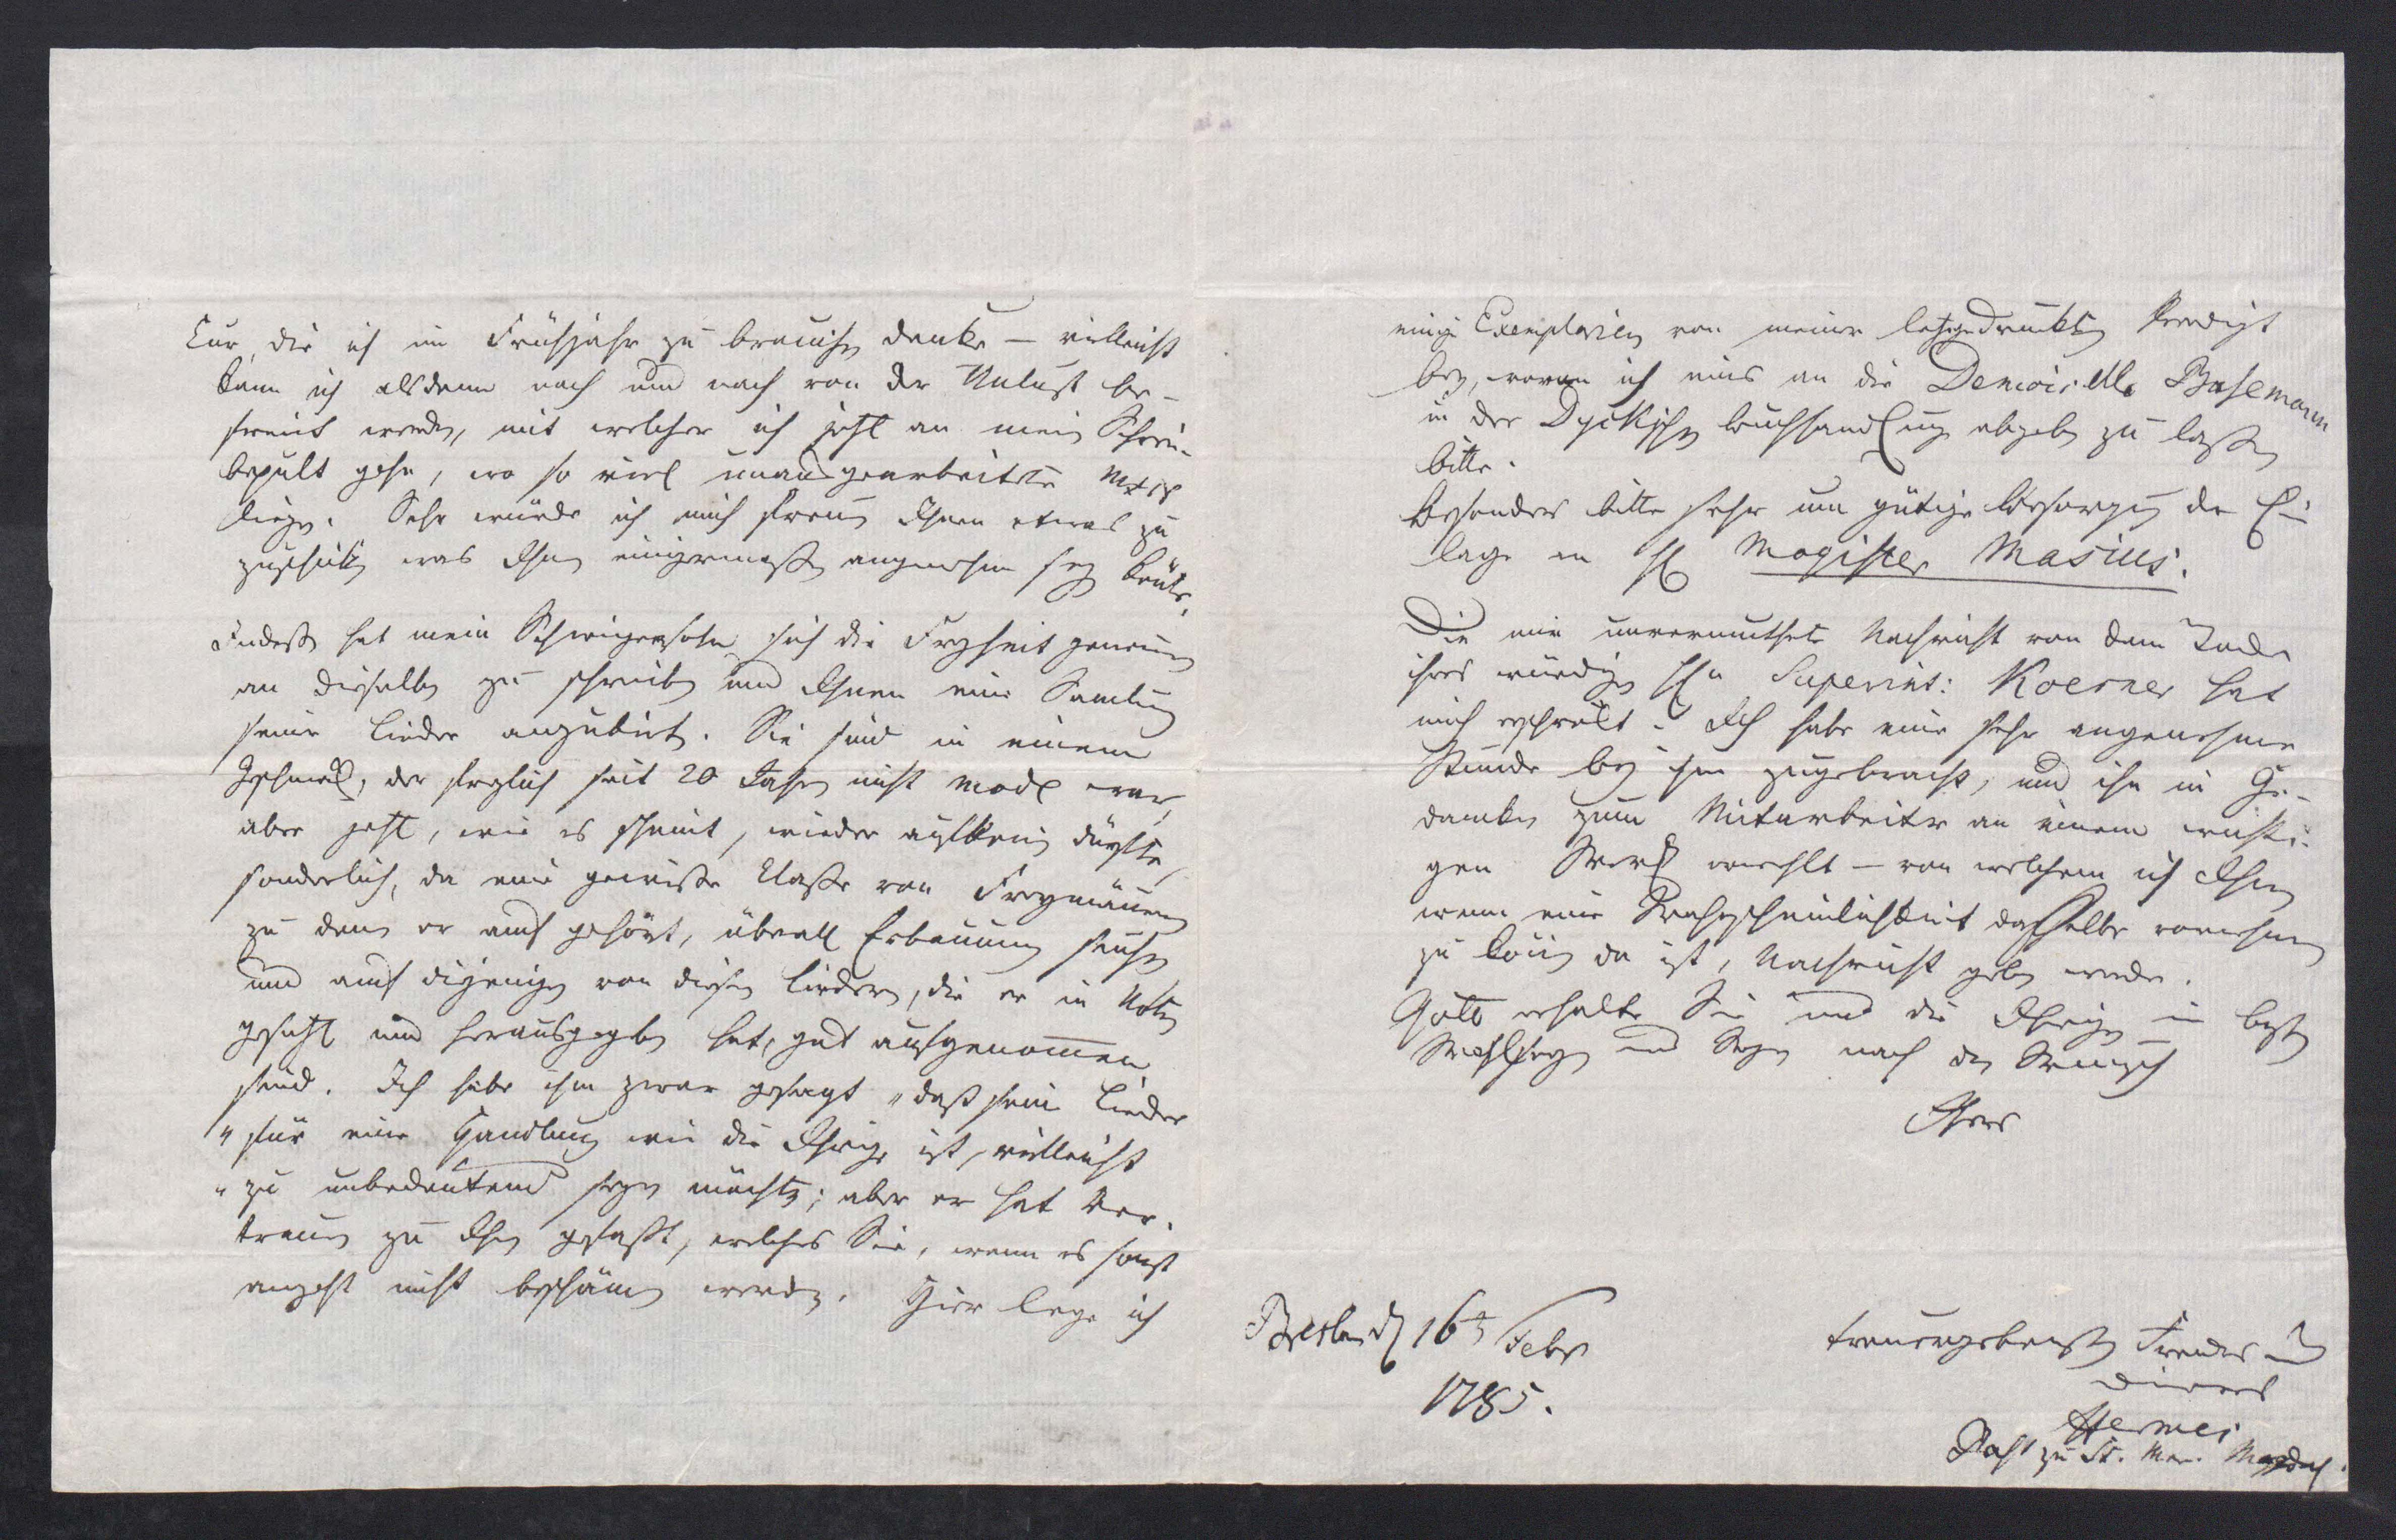 Cur, die ich im Frühjahr zu brauchen denke — vielleicht
kann ich alsdenn nach und nach von der Unlust be-
freit werden, mit welcher ich jezt an mein Schrei-
bepult gehe, wo so viel unausgearbeitete Mscr
liegen. Sehr würde ich mich freuen Ihnen etwas zu
zuschicken was Ihnen einigermaßen angenehm seyn könte.
Indeß hat mein Schwiegersohn sich die Freyheit genomen
an dieselben zu schreiben und Ihnen eine Samlung
seiner Lieder anzubieten. Sie sind in einem
Geschmack, der freylich seit 20 Jahren nicht mode war,
aber jezt, wie es scheint, wieder aufkomen dürfte,
sonderlich, da eine gewisse Classe von Freymäurern
zu denen er auch gehört, überall Erbauung suchen
und auch diejenigen von diesen Liedern, die er in Noten
gesezt und herausgegeben hat, gut aufgenommen
sind. Ich habe ihm zwar gesagt „daß seine Lieder
„für eine Handlung wie die Ihrige ist, vielleicht
„zu unbedeutend seyn möchten; aber er hat Ver-
trauen zu Ihnen gefaßt, welches Sie, wenn es sonst
angeht nicht beschämen werden. Hier lege ich
einige Exemplarien von meiner leztgedruckten Predigt
bey, wovon ich eins an die Demoiselle Basemann
in der Dyckschen Buchhandlung abgeben zu laßen
bitte.
Besonders bitte sehr um gütige Besorgung der Ein-
lage an H Magister Masius.
Die mir unvermuthete Nachricht von dem Tode
ihres würdigen Hn Superint: Koerner hat
mich erschrekt. Ich habe eine sehr angenehme
Stunde bey ihm zugebracht, und ihn in Ge-
danken zum Mitarbeiter an einem wichti-
gen Werk erwehlt — von welchem ich Ihnen
wenn eine Wahrscheinlichkeit dasselbe vornehmen
zu könen da ist, Nachricht geben werde.
Gott erhalte Sie und die Ihrigen in besten
Wohlseyn und Segen nach dem Wunsch
Ihres
Breslau d 16t Febr
1785.
treuergebensten Freundes und
Dieners
Hermes
Past zu St. Mar. Magdal.